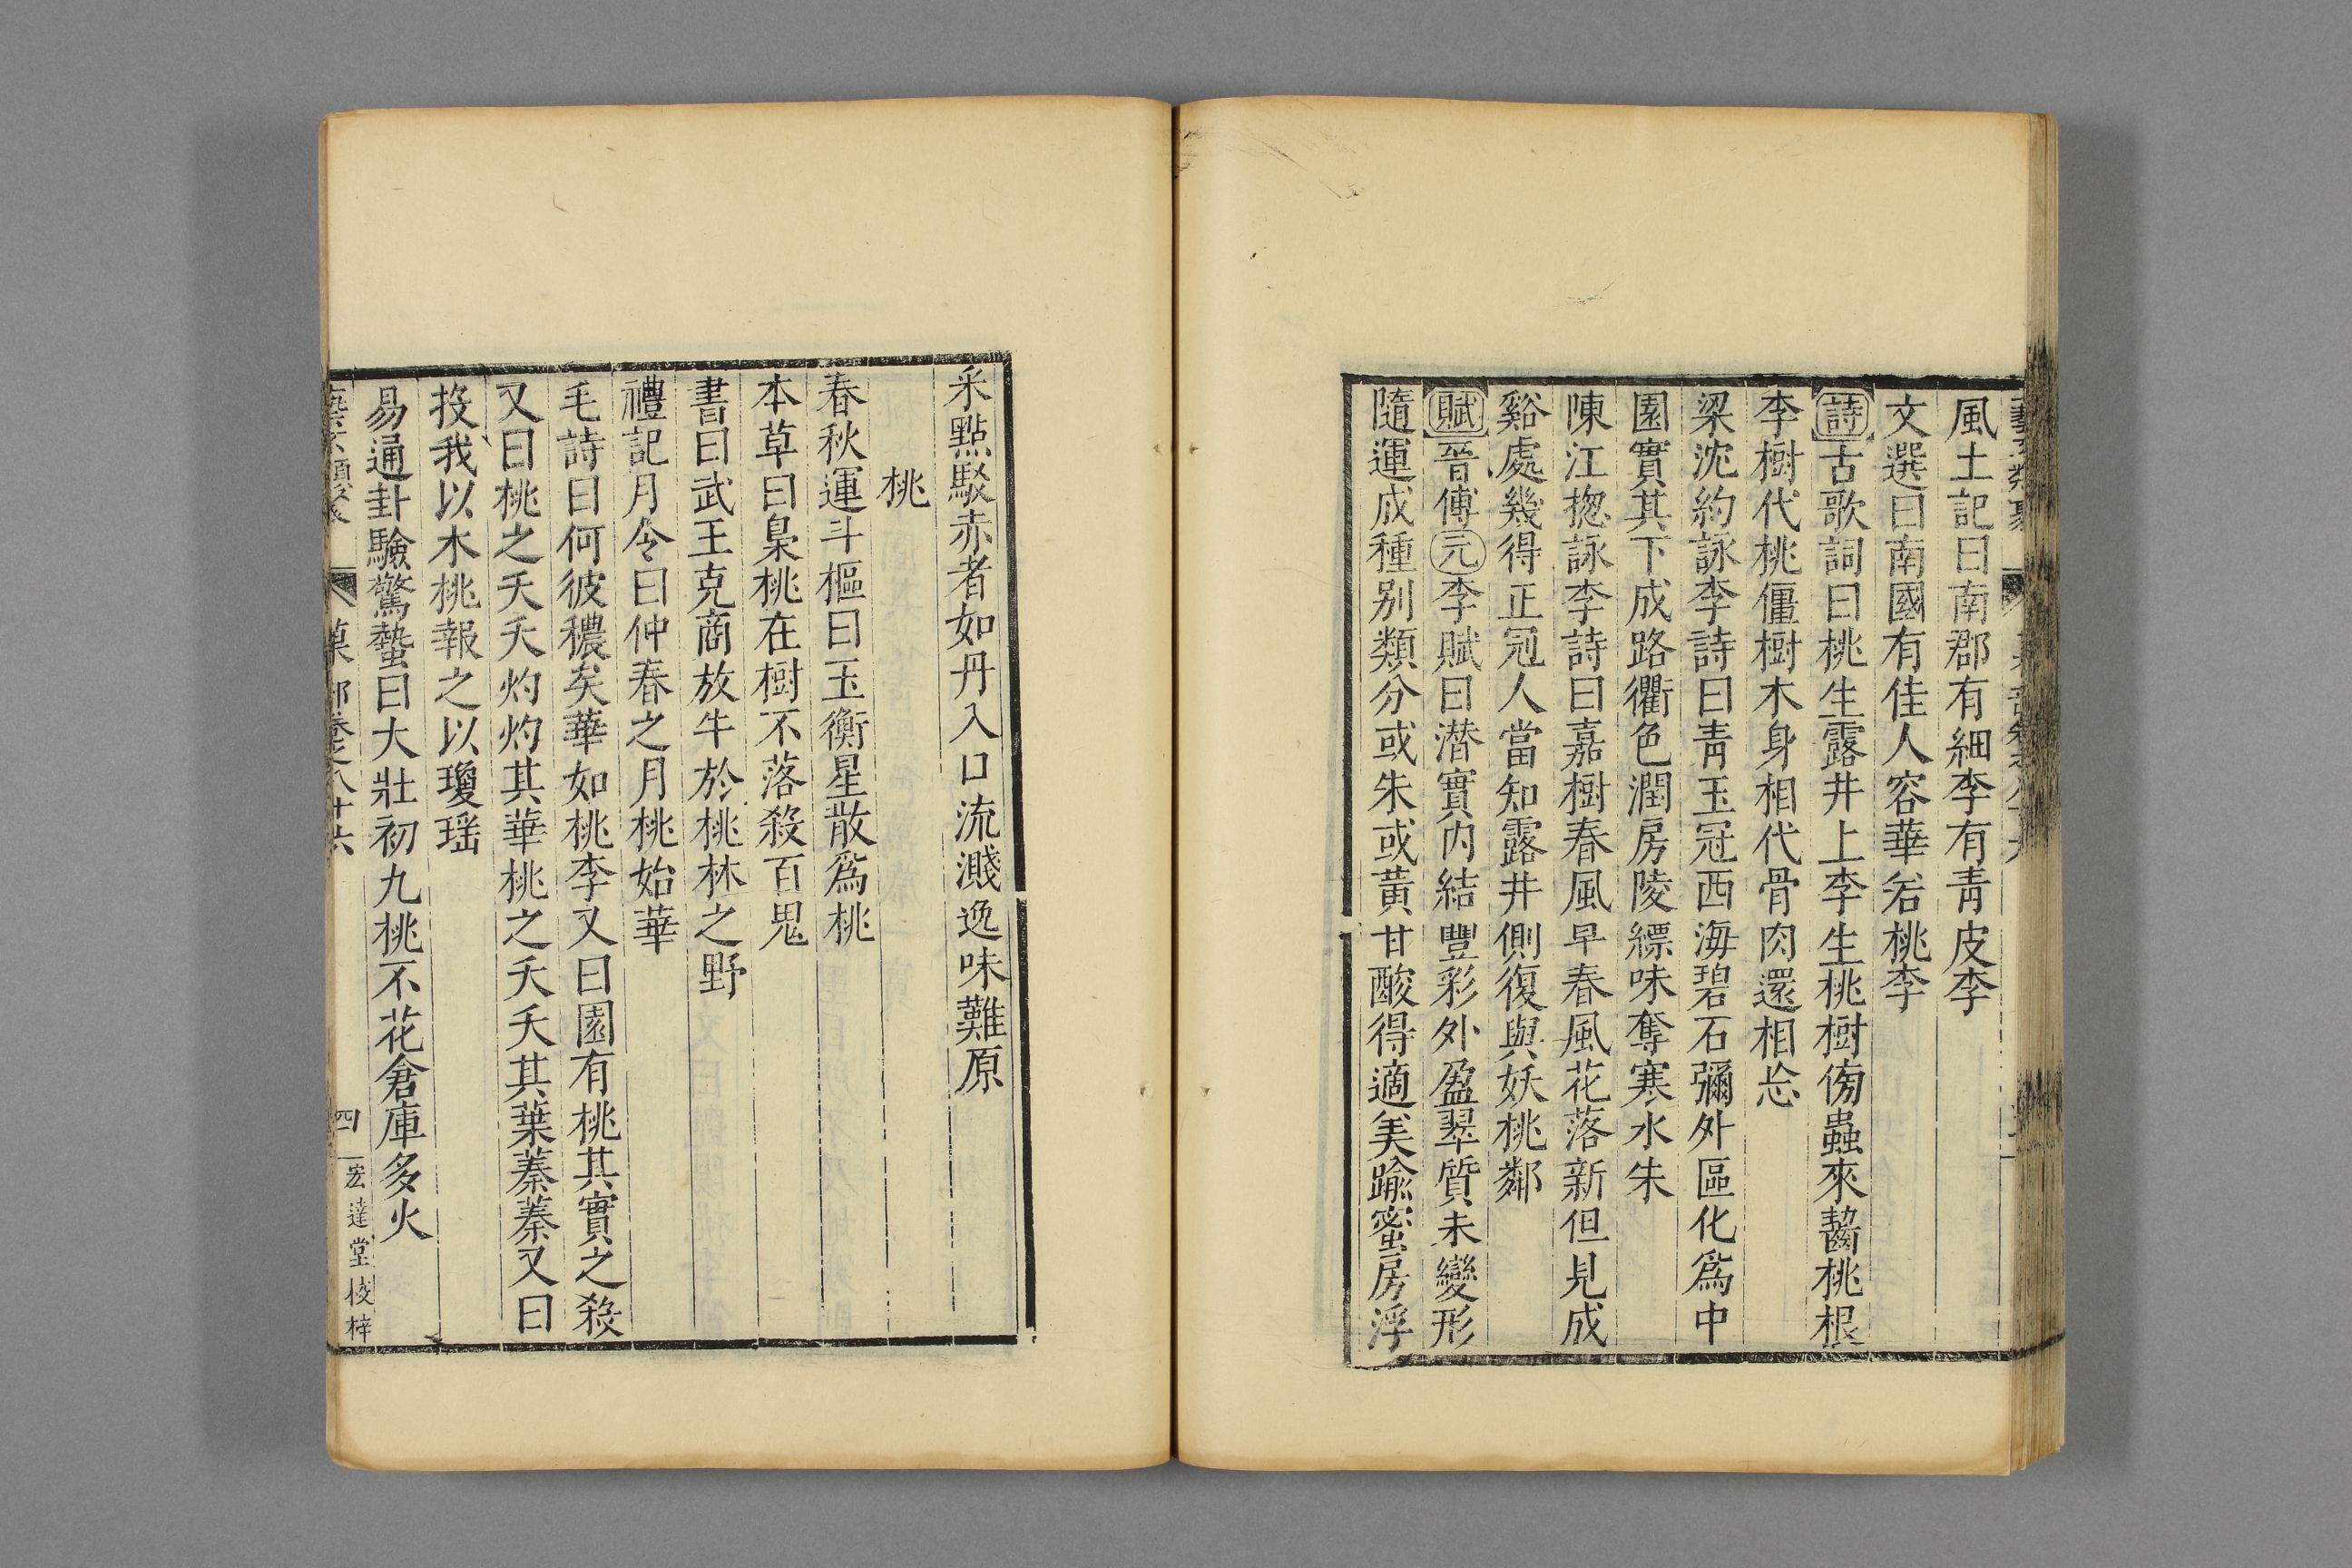 風土記曰南郡有細李有青皮李
文選曰南國有佳人容華若桃李
詩古歌詞曰桃生露井上李生桃樹傍蟲來齧桃根
李樹代桃僵樹木身相代骨肉還相忘
梁沈約詠李詩曰青玉冠西海碧石彌外區化為中
園實其下成路衢色潤房陵縹味奪寒水朱
陳江揔詠李詩曰嘉樹春風早春風花落新但見成
谿處幾得正冠人當知露井側復與妖桃鄰
賦晉傅元李賦曰潛實內結豐彩外盈翠質未變形
隨運成種別類分或朱或黃甘酸得適美踰蜜房浮
采點駁赤者如丹入口流濺逸味難原
桃
春秋運斗樞曰玉衡星散為桃
本草曰梟桃在樹不落殺百鬼
書曰武王克商放牛於桃林之野
禮記月令曰仲春之月桃始華
毛詩曰何彼穠矣華如桃李又曰園有桃其實之殽
又曰桃之夭夭灼灼其華桃之夭夭其葉蓁蓁又曰
投我以木桃報之以瓊瑤
易通卦驗驚蟄曰大壯初九桃不花倉庫多火
菓部卷之八十六
四
宏達堂校梓